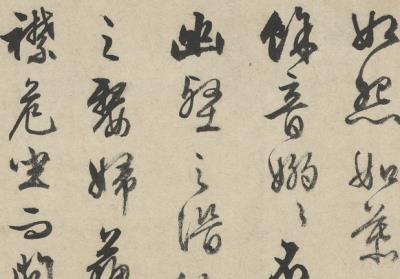 如怨如慕
餘音嫋〻不
幽壑之潛
之嫠婦蘇
襟危坐而問